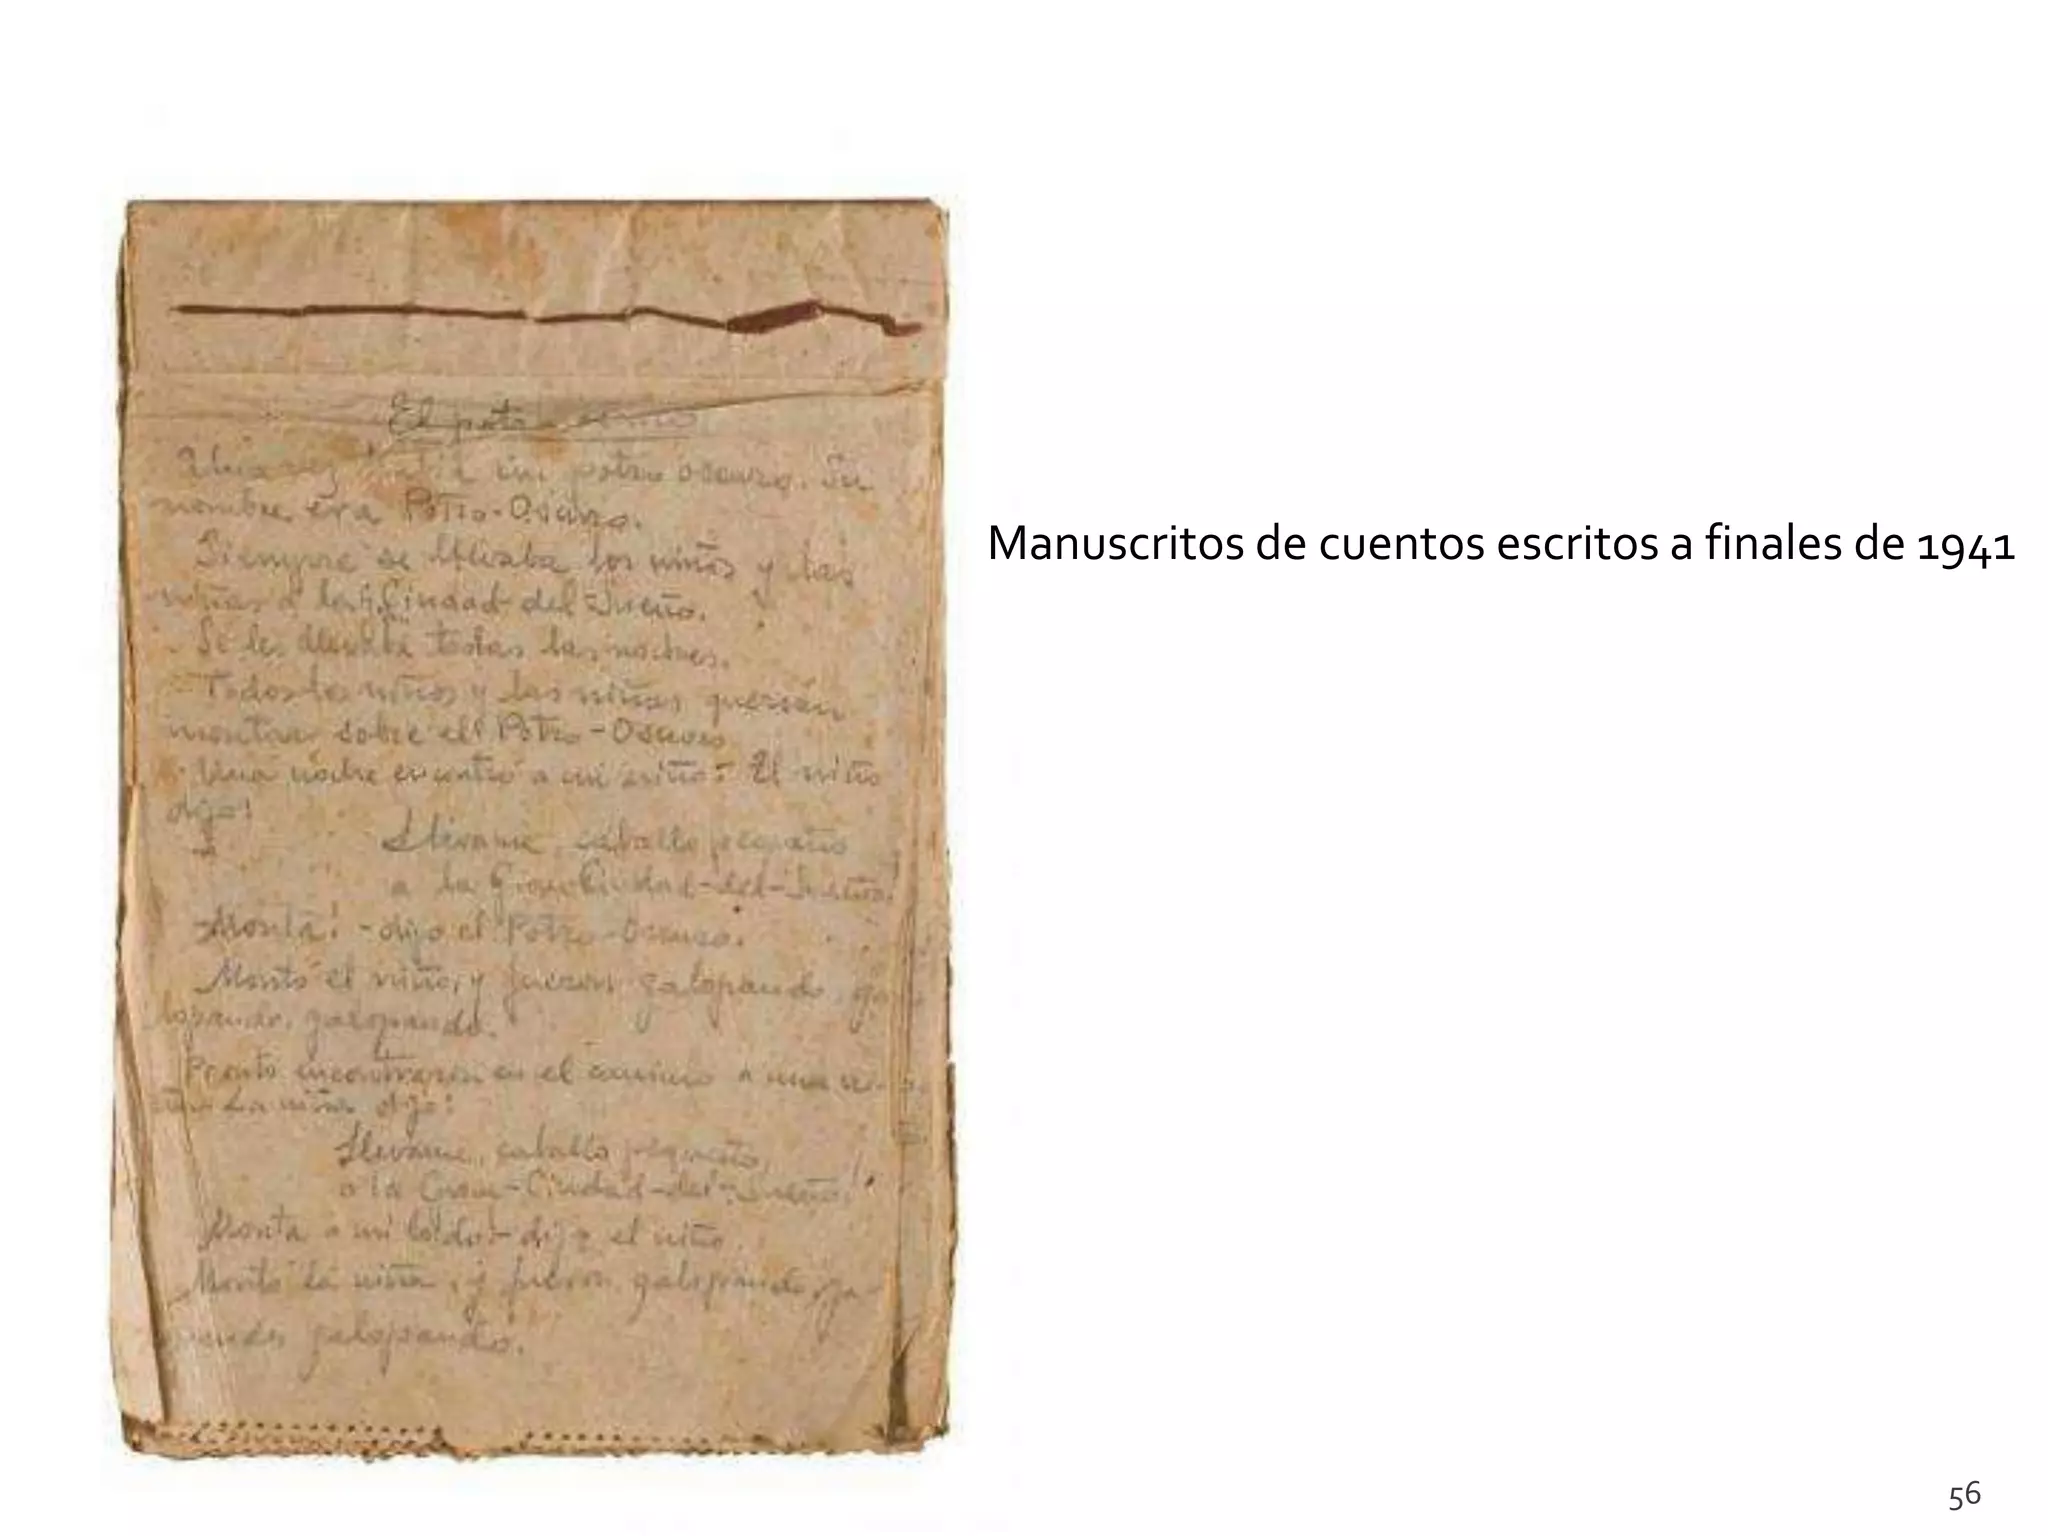 El potro oscuro
Una vez había un potro oscuro. Su
nombre era Potro-Oscuro.
Siempre se llevaba los niños y las
niñas a la Gran Ciudad del Sueño.
Se les llevaba todas las noches.
Todos los niños y las niñas querían
montar sobre el Potro-Oscuro.
Una noche encontró a un niño. El niño
dijo:
Llévame, caballo pequeño
a la Gran Ciudad-del-Sueño!
-Monta! -dijo el Potro-Oscuro.
Montó el niño, y fueron galopando, ga-
lopando, galopando.
Pronto encontraron en el camino a una ni-
ña. La niña dijo:
Llévame, caballo pequeño,
a la Gran-Ciudad-del-Sueño!
Monta a mi lado! - dijo el niño.
Montó la niña, y fueron galopando, ga-
galopando.
Manuscritos de cuentos escritos a finales de 1941
56